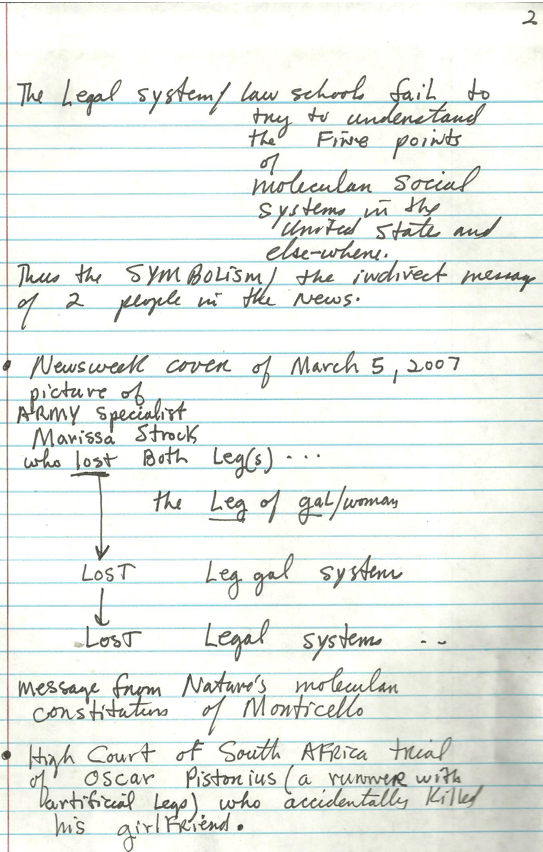 2
The Legal system/ law schools fail to
try to understand
the Fine points
of
molecular social
systems in the
United States and
else-where.
Thus the SYMBOLISM/ the indirect message
of 2 people in the News.
• Newsweek cover of March 5, 2007
picture of
ARMY specialist
Marissa Strock
who lost Both Leg(s) ...
the Leg of gal/woman
LOST Leg gal system
LOST Legal systems ..
message from Nature's molecular
constitution of Monticello
• High Court of South AFrica trial
of Oscar Pistorius (a runner with
artificial Legs) who accidentally killed
his girlFriend.